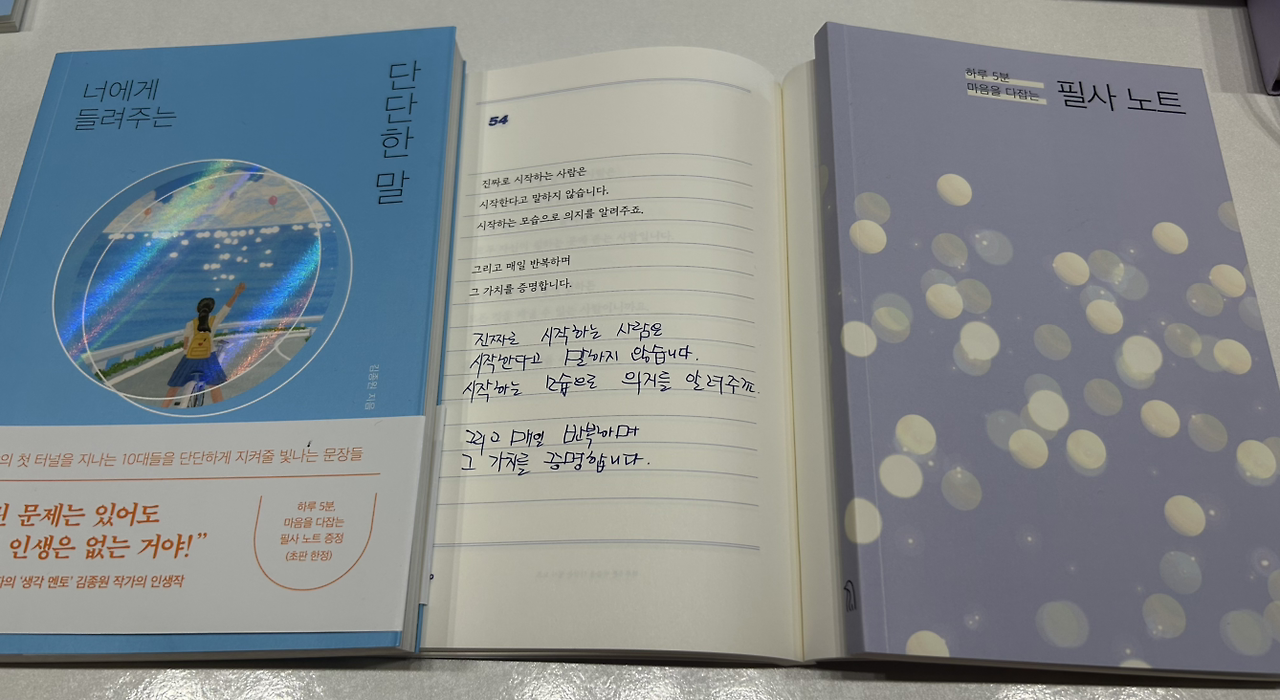 너에게
들려주는
단단한 말
김종원 지음
의 첫 터널을 지나는 10대들을 단단하게 지켜줄 빛나는 문장들
문제는 있어도
인생은 없는 거야!”
의 ‘생각 멘토’ 김종원 작가의 인생작
하루 5분,
마음을 다잡는
필사 노트 증정
(초판 한정)
54
진짜로 시작하는 사람은
시작한다고 말하지 않습니다.
시작하는 모습으로 의지를 알려주죠.
그리고 매일 반복하며
그 가치를 증명합니다.
진짜로 시작하는 사람은
시작한다고 말하지 않습니다.
시작하는 모습으로 의지를 알려주죠.
그리고 매일 반복하며
그 가치를 증명합니다.
하루 5분
마음을 다잡는
필사 노트